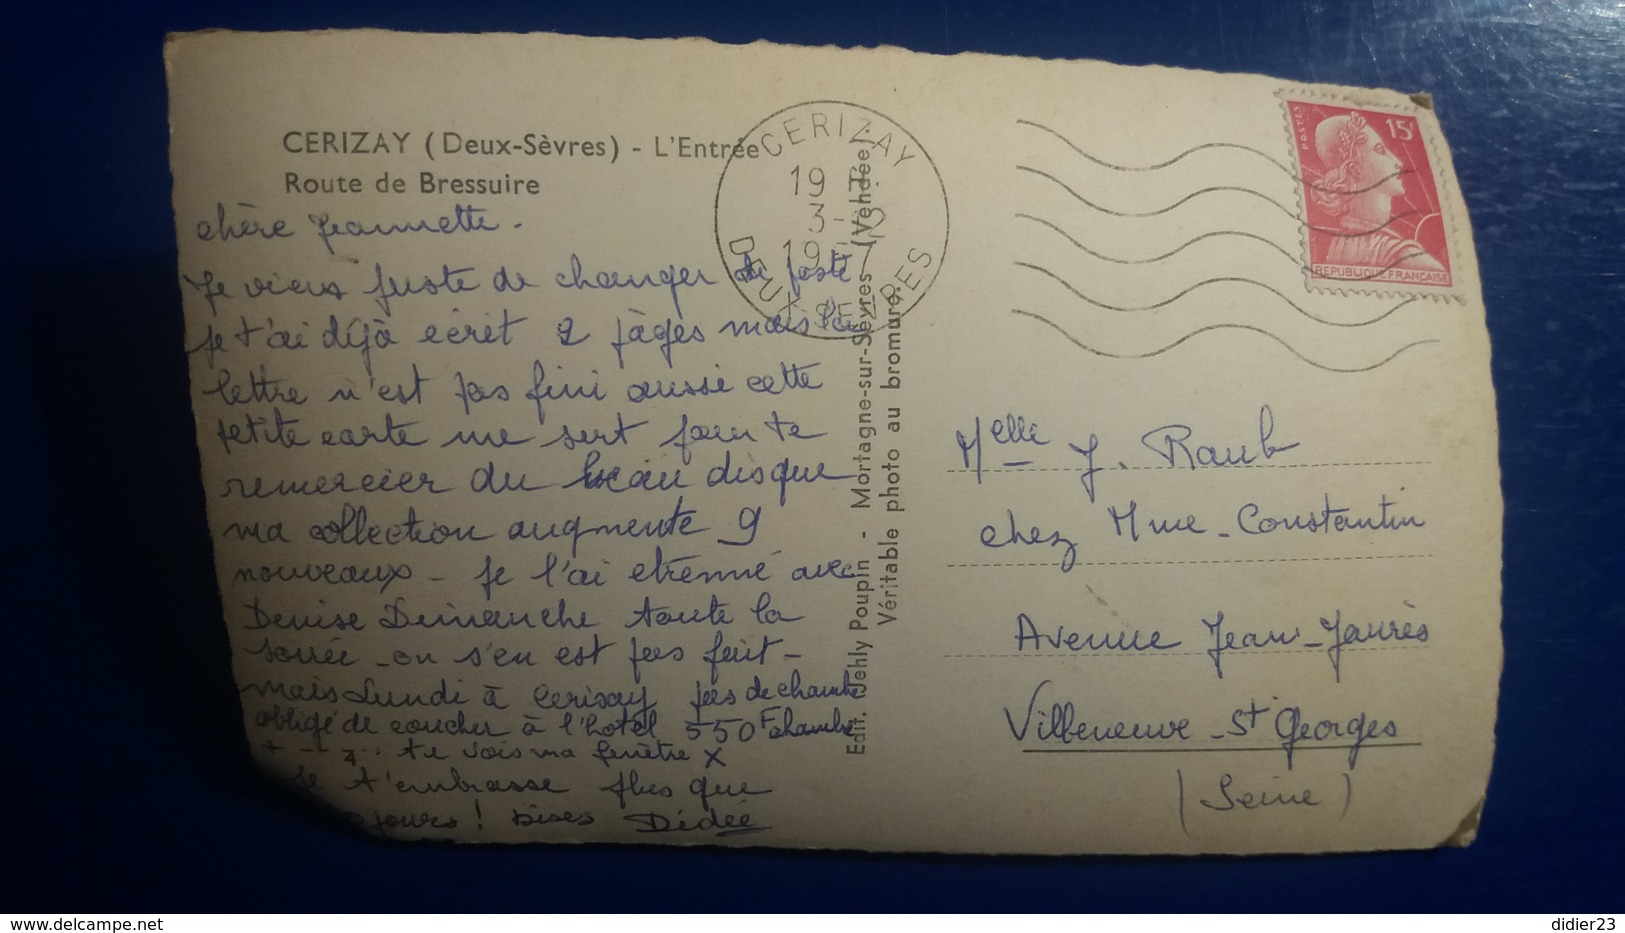 CERIZAY (Deux-Sèvres) - L'Entrée
Route de Bressuire
chère Jeannette.
Je viens juste de changer de poste
je t'ai déjà écrit 2 pages mais la
lettre n'est pas fini aussi cette
petite carte me sert pour te
remercier du beau disque
ma collection augmente 9
nouveaux - je l'ai etrenné avec
Denise Dimanche toute la
soirée - on s'en est pas fait -
mais Lundi à Cerizay pas de chambre
obligé de coucher à l'hotel 550F chambre
te vois ma fenêtre X
Je t'embrasse plus que
jours ! bises Dédée
Edit. Jehly Poupin - Mortagne-sur-Sèvres (Vendée)
Véritable photo au bromure.
CERIZAY
19 H
3-
19
DEUX SEVRES
POSTES
15F
REPUBLIQUE FRANÇAISE
Melle J. Raub
chez Mme Constantin
Avenue Jean-Jaurès
Villeneuve-St Georges
(Seine)
didier23